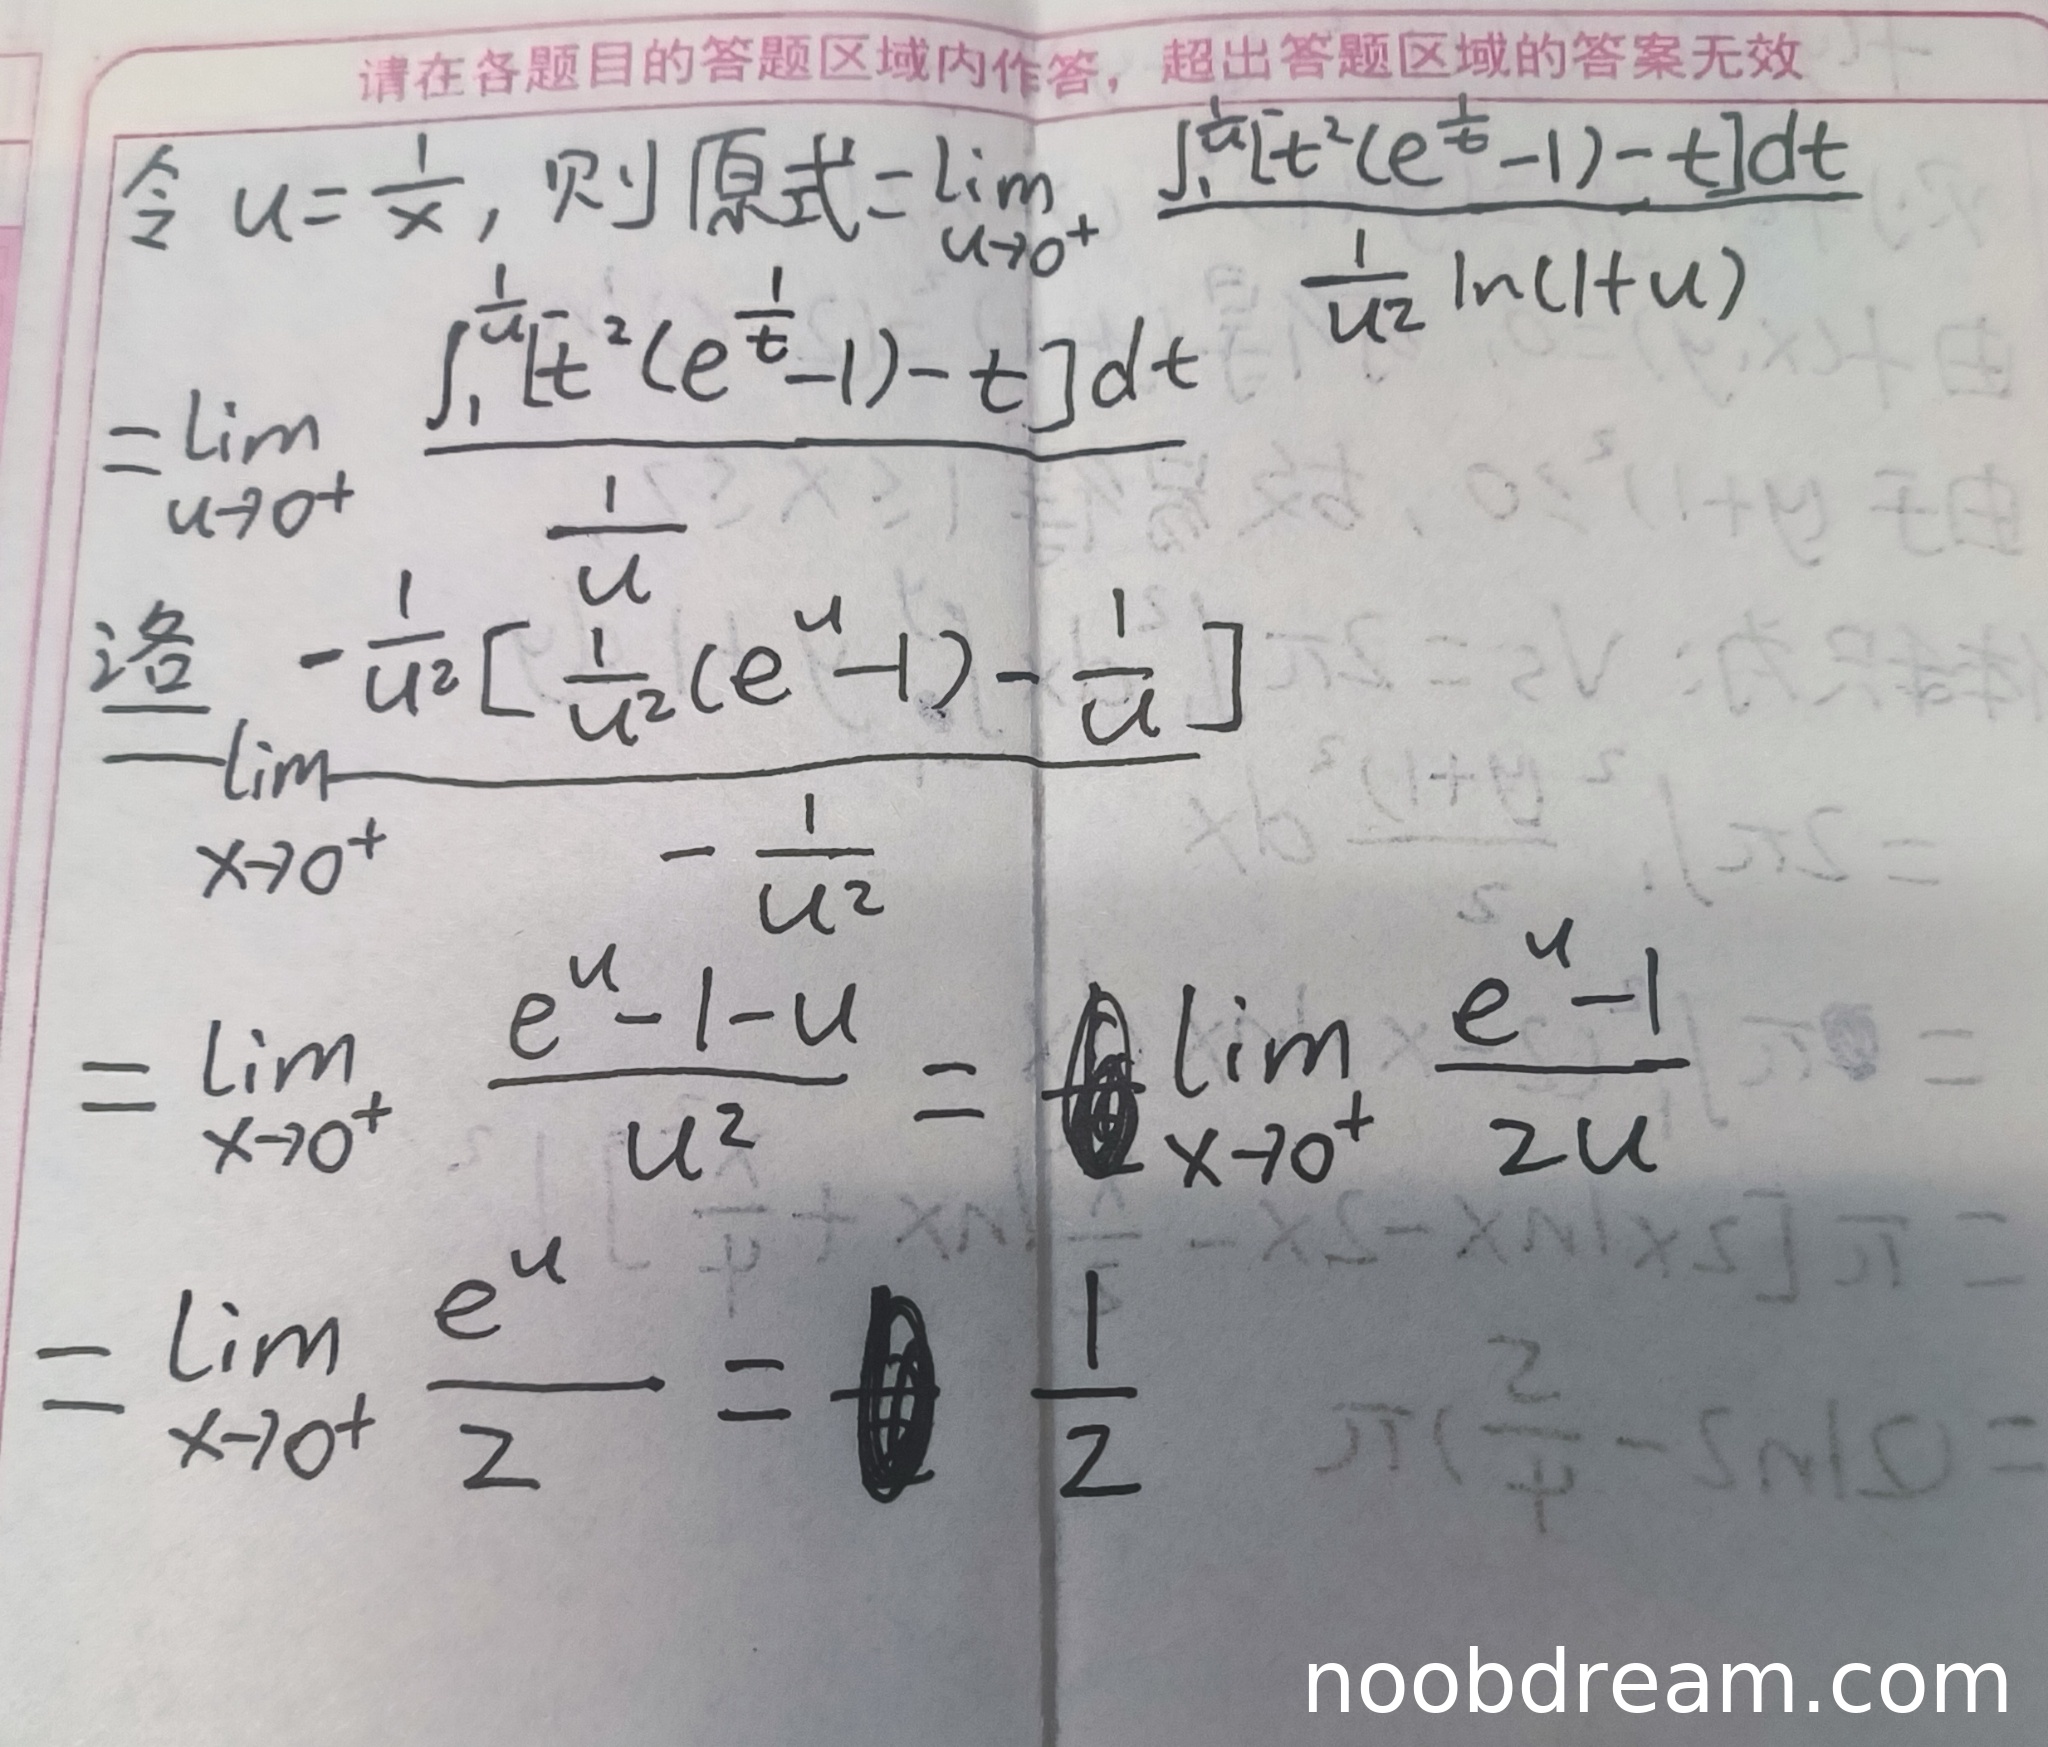 请在各题目的答题区域内作答，超出答题区域的答案无效
令 u = 1/x, 则原式 = lim_{u→0⁺} ∫₁^{1/u} [t²(e^{1/t} - 1) - t]dt / (1/u² ln(1+u))
= lim_{u→0⁺} ∫₁^{1/u} [t²(e^{1/t} - 1) - t]dt / (1/u)
洛 = lim_{x→0⁺} -1/u² [1/u² (e^u - 1) - 1/u] / (-1/u²)
= lim_{x→0⁺} (e^u - 1 - u) / u² = lim_{x→0⁺} (e^u - 1) / 2u
= lim_{x→0⁺} e^u / 2 = 1/2
noobdream.com